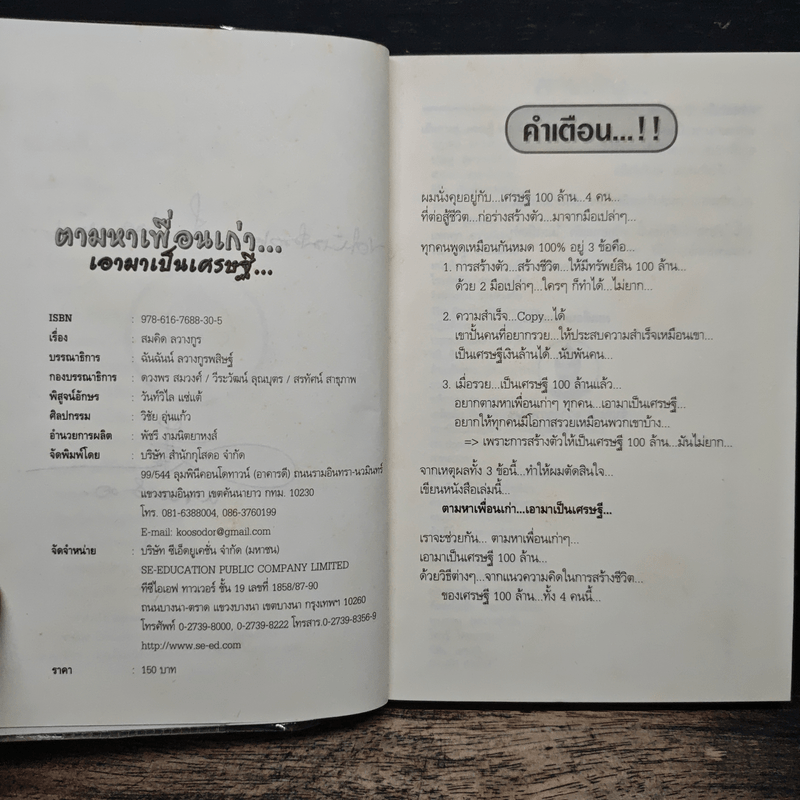 ตามหาเพื่อนเก่า...
เอามาเป็นเศรษฐี...
ISBN : 978-616-7688-30-5
เรื่อง : สมคิด ลวางกูร
บรรณาธิการ : ฉันฉันน์ ลวางกูรพสิษฐ์
กองบรรณาธิการ : ดวงพร สมวงศ์ / วีระวัฒน์ ลุณบุตร / สรทัศน์ สาชุภาพ
พิสูจน์อักษร : วันท์วิไล แซ่แต้
ศิลปกรรม : วิชัย อุ่นแก้ว
อำนวยการผลิต : พัชรี งามนิตยาหงส์
จัดพิมพ์โดย : บริษัท สำนักกู่โสดอ จำกัด
99/544 ลุมพินีคอนโดทาวน์ (อาคารดี) ถนนรามอินทรา-นวมินทร์
แขวงรามอินทรา เขตคันนายาว กทม. 10230
โทร. 081-6388004, 086-3760199
E-mail: koosodor@gmail.com
จัดจำหน่าย : บริษัท ซีเอ็ดยูเคชั่น จำกัด (มหาชน)
SE-EDUCATION PUBLIC COMPANY LIMITED
ทีซีไอเอฟ ทาวเวอร์ ชั้น 19 เลขที่ 1858/87-90
ถนนบางนา-ตราด แขวงบางนา เขตบางนา กรุงเทพฯ 10260
โทรศัพท์ 0-2739-8000, 0-2739-8222 โทรสาร.0-2739-8356-9
http://www.se-ed.com
ราคา : 150 บาท
คำเตือน...!!
ผมนั่งคุยอยู่กับ...เศรษฐี 100 ล้าน...4 คน...
ที่ต่อสู้ชีวิต...ก่อร่างสร้างตัว...มาจากมือเปล่าๆ...
ทุกคนพูดเหมือนกันหมด 100% อยู่ 3 ข้อคือ...
1. การสร้างตัว...สร้างชีวิต...ให้มีทรัพย์สิน 100 ล้าน...
ด้วย 2 มือเปล่าๆ...ใครๆ ก็ทำได้...ไม่ยาก...
2. ความสำเร็จ...Copy...ได้
เขาปั้นคนที่อยากรวย...ให้ประสบความสำเร็จเหมือนเขา...
เป็นเศรษฐีเงินล้านได้...นับพันคน...
3. เมื่อรวย...เป็นเศรษฐี 100 ล้านแล้ว...
อยากตามหาเพื่อนเก่าๆ ทุกคน...เอามาเป็นเศรษฐี...
อยากให้ทุกคนมีโอกาสรวยเหมือนพวกเขาบ้าง...
=> เพราะการสร้างตัวให้เป็นเศรษฐี 100 ล้าน...มันไม่ยาก...
จากเหตุผลทั้ง 3 ข้อนี้...ทำให้ผมตัดสินใจ...
เขียนหนังสือเล่มนี้...
ตามหาเพื่อนเก่า...เอามาเป็นเศรษฐี...
เราจะช่วยกัน... ตามหาเพื่อนเก่าๆ...
เอามาเป็นเศรษฐี 100 ล้าน...
ด้วยวิธีต่างๆ...จากแนวความคิดในการสร้างชีวิต...
ของเศรษฐี 100 ล้าน...ทั้ง 4 คนนี้...